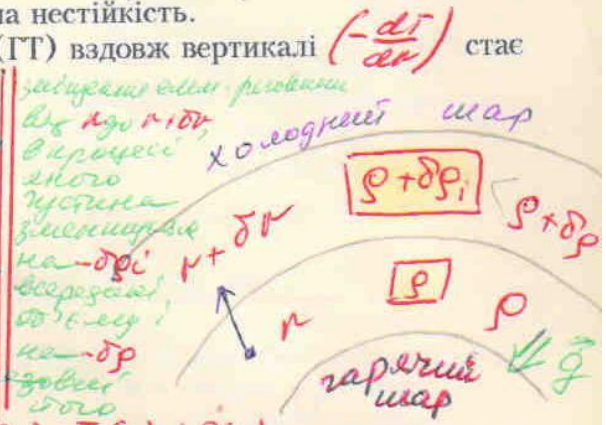 на нестійкість.
(ГТ) вздовж вертикалі (-dT/dr) стає
зміщення елем. речовини
від r до r+δr,
в процесі
якого
густина
зменшилася
на -δρi
всередині
об'єму і
на -δρ
ззовні
його
холодний шар
ρ+δρi
ρ+δρ
r+δr
ρ
r
ρ
g
гарячий
шар